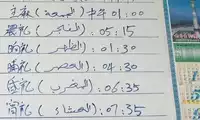 主礼 (الجمعة) 中午 01:00
晨礼 (الفجر) : 05:15
晌礼 (الظهر) : 01:30
晡礼 (العصر) : 04:30
昏礼 (المغرب) : 06:35
宵礼 (العشاء) : 07:35